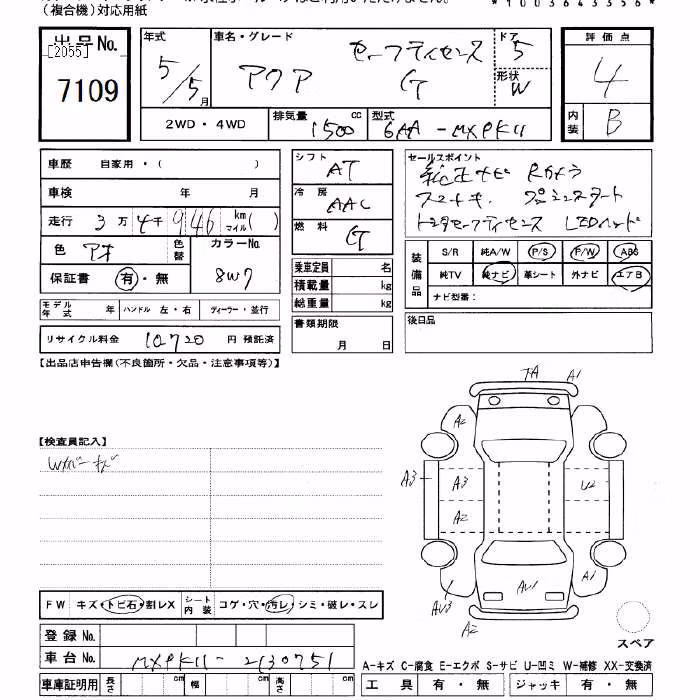 (複合機)対応用紙
*1003643356*
出品No.
[2055]
7109
年式
5/5月
車名・グレード
セーフティセンス
アクア G
ドア
5
形状
W
評価点
4
内装
B
2WD・4WD
排気量
1500 cc
型式
6AA-MXPK11
車歴 自家用・( )
車検 年 月
走行 3万4千946 km マイル( )
色 アオ 色替
カラーNo.
8W7
保証書 有・無
モデル年式 年 ハンドル 左・右 ディーラー・並行
リサイクル料金 10720 円 預託済
シフト
AT
冷房
AAC
燃料
G
乗車定員 名
積載量 kg
総重量 kg
書類期限
月 日
セールスポイント
純正ナビ Rカメラ
スマートキー プッシュスタート
トヨタセーフティセンス LEDヘッド
装備品
S/R 純A/W P/S P/W ABS
純TV 純ナビ 革シート 外ナビ エアB
ナビ型番:
後日品
【出品店申告欄(不良箇所・欠品・注意事項等)】
【検査員記入】
Wカバーキズ
7A A1
A2
A3 A3 U2
A2
AU1 A1
AU3
A2
スペア
FW キズ・トビ石・割レX シート内装 コゲ・穴・汚レ・シミ・破レ・スレ
登録No.
車台No. MXPK11-2130751
車庫証明用 長さ cm 幅 cm 高さ cm
A-キズ C-腐食 E-エクボ S-サビ U-凹ミ W-補修 XX-交換済
工具 有・無 ジャッキ 有・無